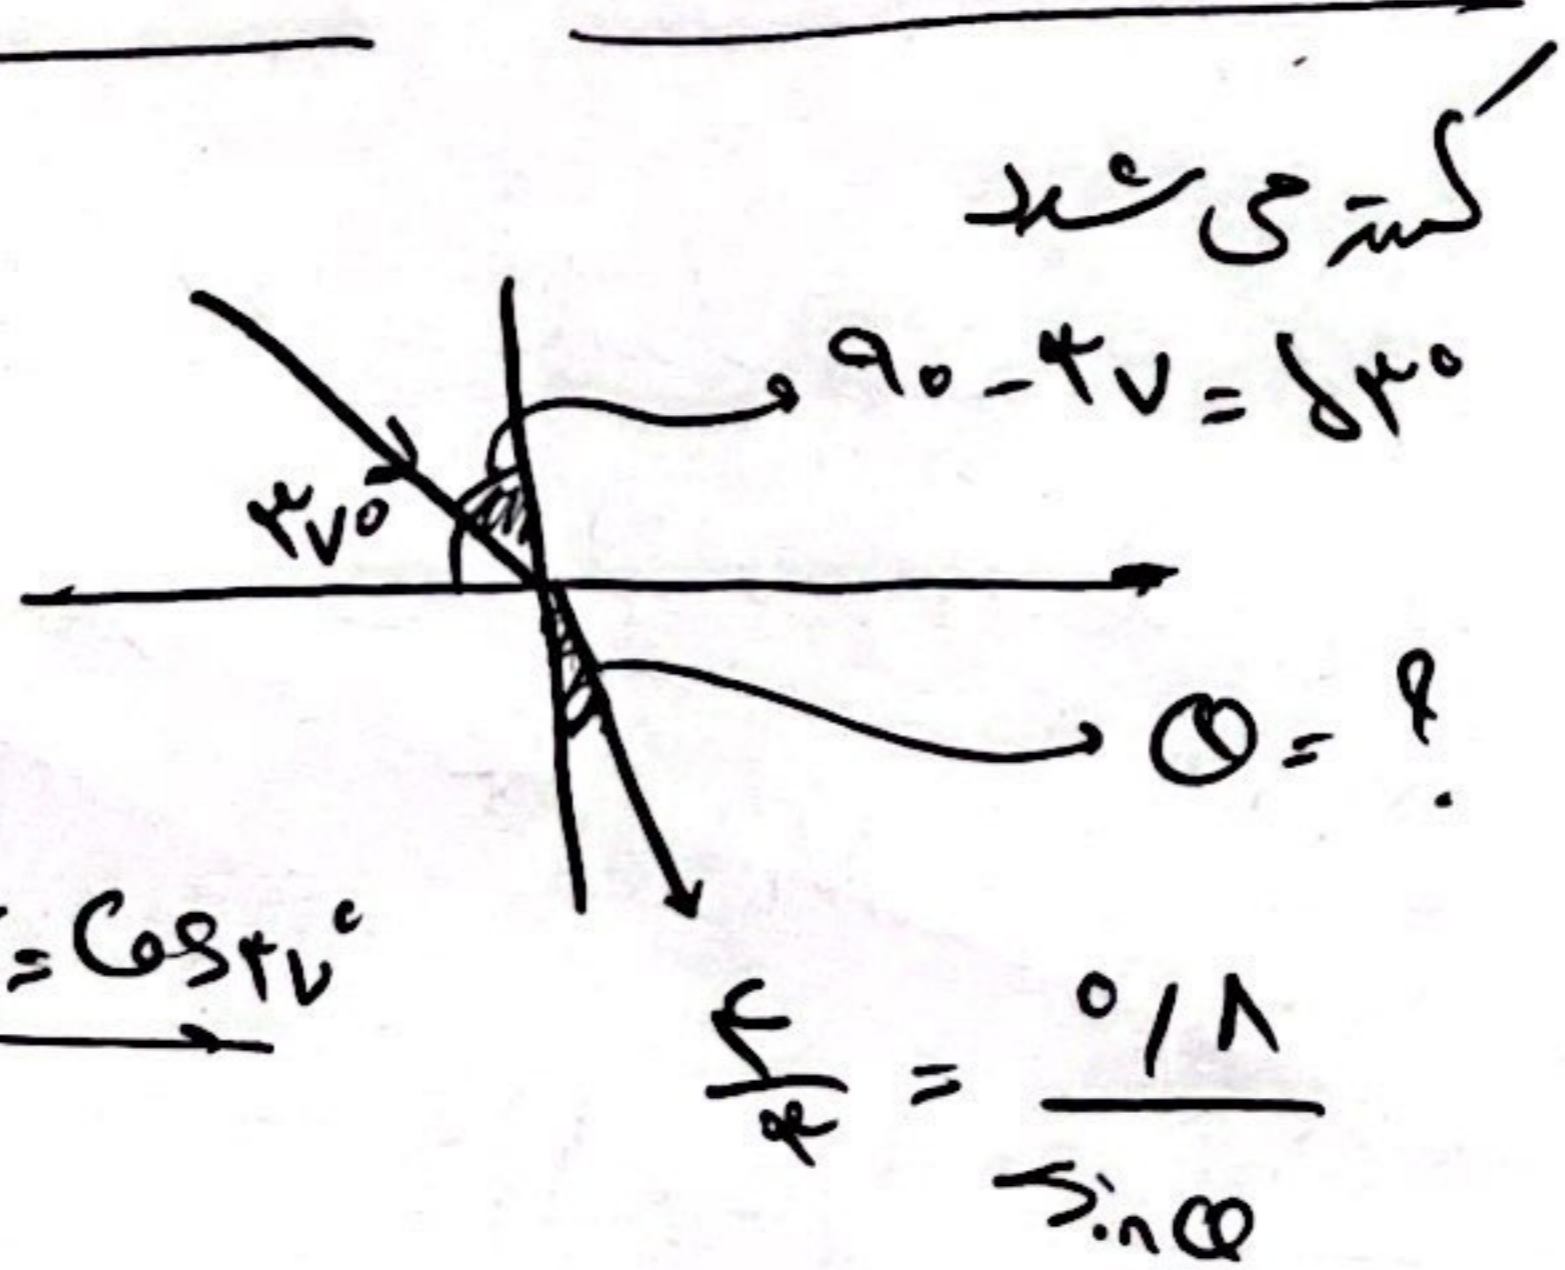 کمتر می شود
۹۰ - ۳۷ = ۵۳°
۳۷°
θ = ؟
= Cos ۳۷°
۴/۳ = ۰/۸ / sin θ